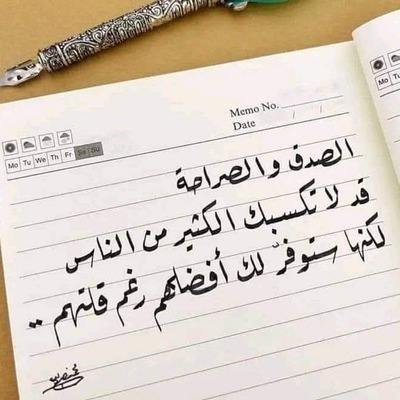 Memo No.
Date / /
Mo Tu We Th Fr Sa Su
Mo
Tu
الصدق والصراحة
قد لا تكسبك الكثير من الناس
لكنها ستوفرّ لك أفضلهم رغم قلتهم ..